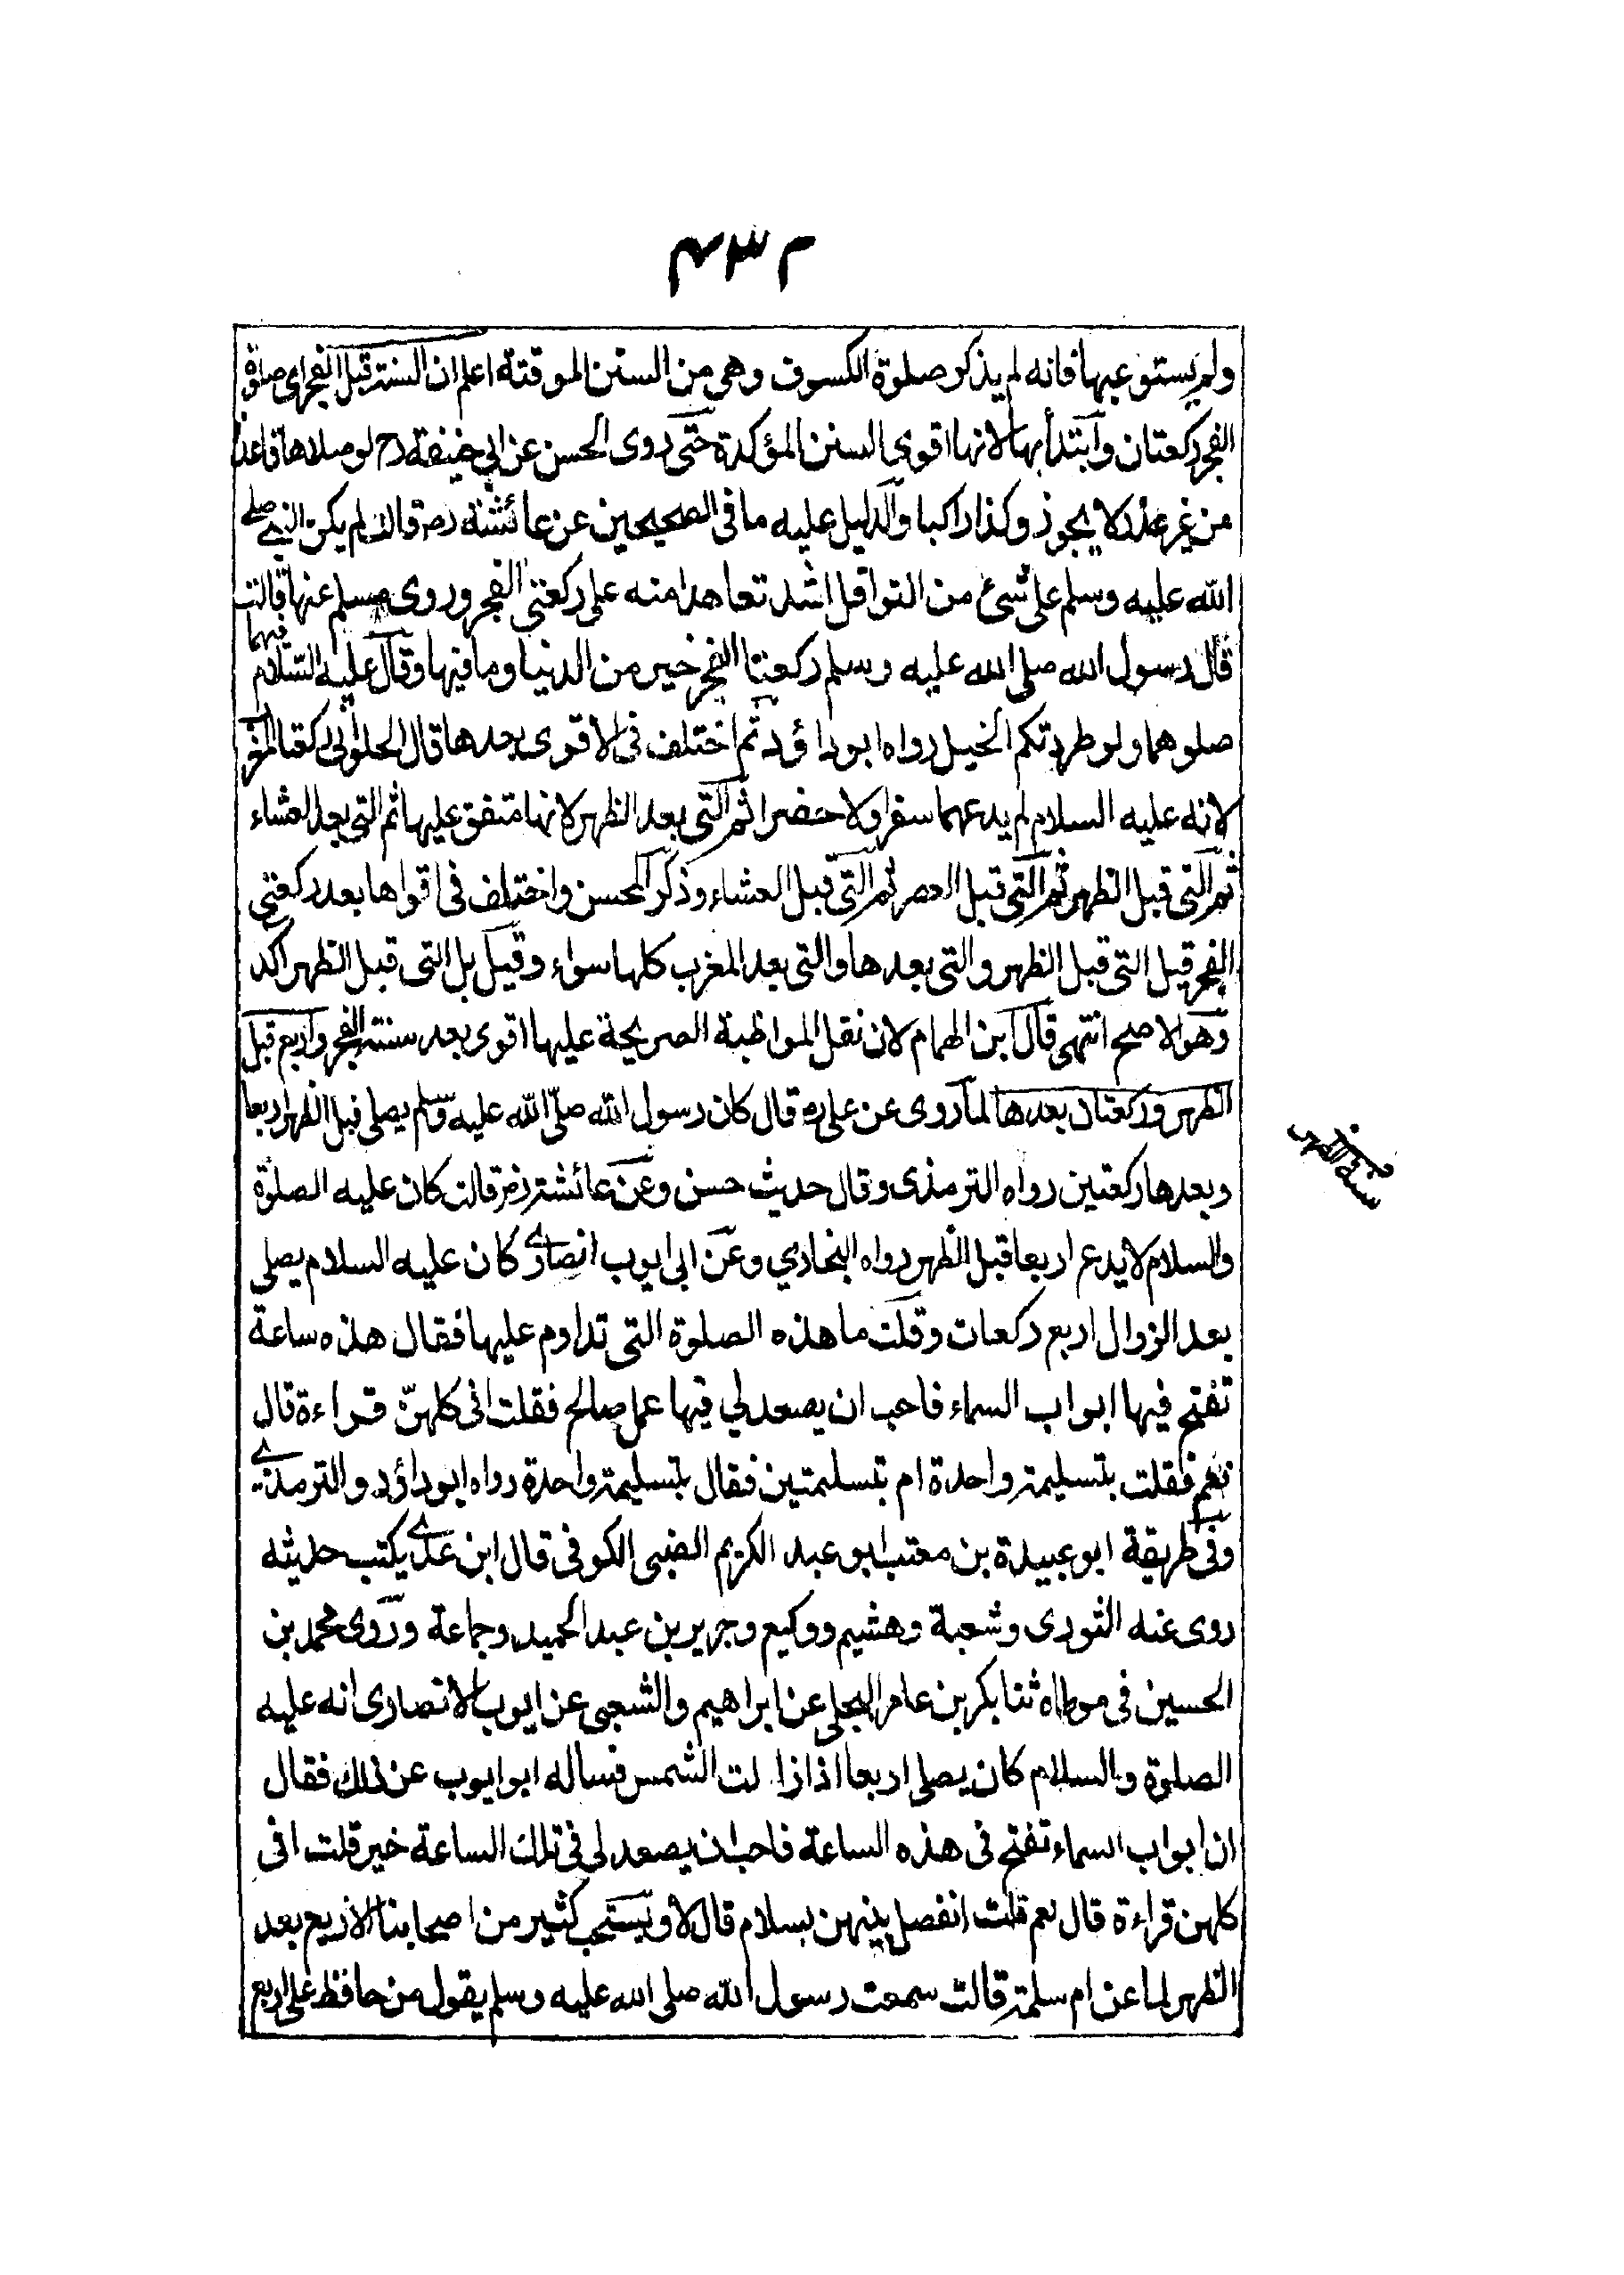 ٢٣٤
ولم يستوعبها فانه لم يذكر صلوة الكسوف وهى من السنن الموقتة اعلم ان السنة قبل الفجر اى صلوة
الفجر ركعتان وابتدأ بها لانها اقوى السنن المؤكدة حتى روى الحسن عن ابى حنيفة رح لو صلاها قاعدا
من غير عذر لا يجوز وكذا راكبا والدليل عليه ما فى الصحيحين عن عائشة رض قالت لم يكن النبى صلى
الله عليه وسلم على شئ من النوافل اشد تعاهدا منه على ركعتى الفجر وروى مسلم عنها قالت
قال رسول الله صلى الله عليه وسلم ركعتا الفجر خير من الدنيا وما فيها وقال عليه السلام فيهما
صلوهما ولو طردتكم الخيل رواه ابو داؤد ثم اختلف فى الاقوى بعدها قال الحلوانى ركعتا المغرب
لانه عليه السلام لم يدعهما سفرا ولا حضرا ثم التى بعد الظهر لانها متفق عليها ثم التى بعد العشاء
ثم التى قبل الظهر ثم التى قبل العصر ثم التى قبل العشاء وذكر المحسن واختلف فى اقواها بعد ركعتى
الفجر قيل التى قبل الظهر والتى بعدها والتى بعد المغرب كلها سواء وقيل بل التى قبل الظهر اكد
وهو الاصح انتهى قال ابن الهمام لان نقل المواظبة الصريحة عليها اقوى بعد سنة الفجر واربع قبل
الظهر وركعتان بعدها لما روى عن على ره قال كان رسول الله صلى الله عليه وسلم يصلى قبل الظهر اربعا
وبعدها ركعتين رواه الترمذى وقال حديث حسن وعن عائشة رض قالت كان عليه الصلوة
والسلام لا يدع اربعا قبل الظهر رواه البخاري وعن ابى ايوب انصارى كان عليه السلام يصلى
بعد الزوال اربع ركعات وقلت ما هذه الصلوة التى تداوم عليها فقال هذه ساعة
تفتح فيها ابواب السماء فاحب ان يصعد لي فيها عمل صالح فقلت افى كلهن قراءة قال
نعم فقلت بتسليمة واحدة ام بتسليمتين فقال بتسليمة واحدة رواه ابو داؤد والترمذى
وفى طريقة ابو عبيدة بن معتب ابو عبد الكريم الضبى الكوفى قال ابن عدى يكتب حديثه
روى عنه الثورى وشعبة وهشيم ووكيع وجرير بن عبد الحميد وجماعة وروى محمد بن
الحسين فى موطاه ثنا بكر بن عامر البجلى عن ابراهيم والشعبى عن ايوب الانصارى انه عليه
الصلوة والسلام كان يصلى اربعا اذا زالت الشمس فساله ابو ايوب عن ذلك فقال
ان ابواب السماء تفتح فى هذه الساعة فاحب ان يصعد لى فى تلك الساعة خير قلت افى
كلهن قراءة قال نعم قلت انفصل بينهن بسلام قال لا ويستحب كثير من اصحابنا الاربع بعد
الظهر لما عن ام سلمة قالت سمعت رسول الله صلى الله عليه وسلم يقول من حافظ على اربع